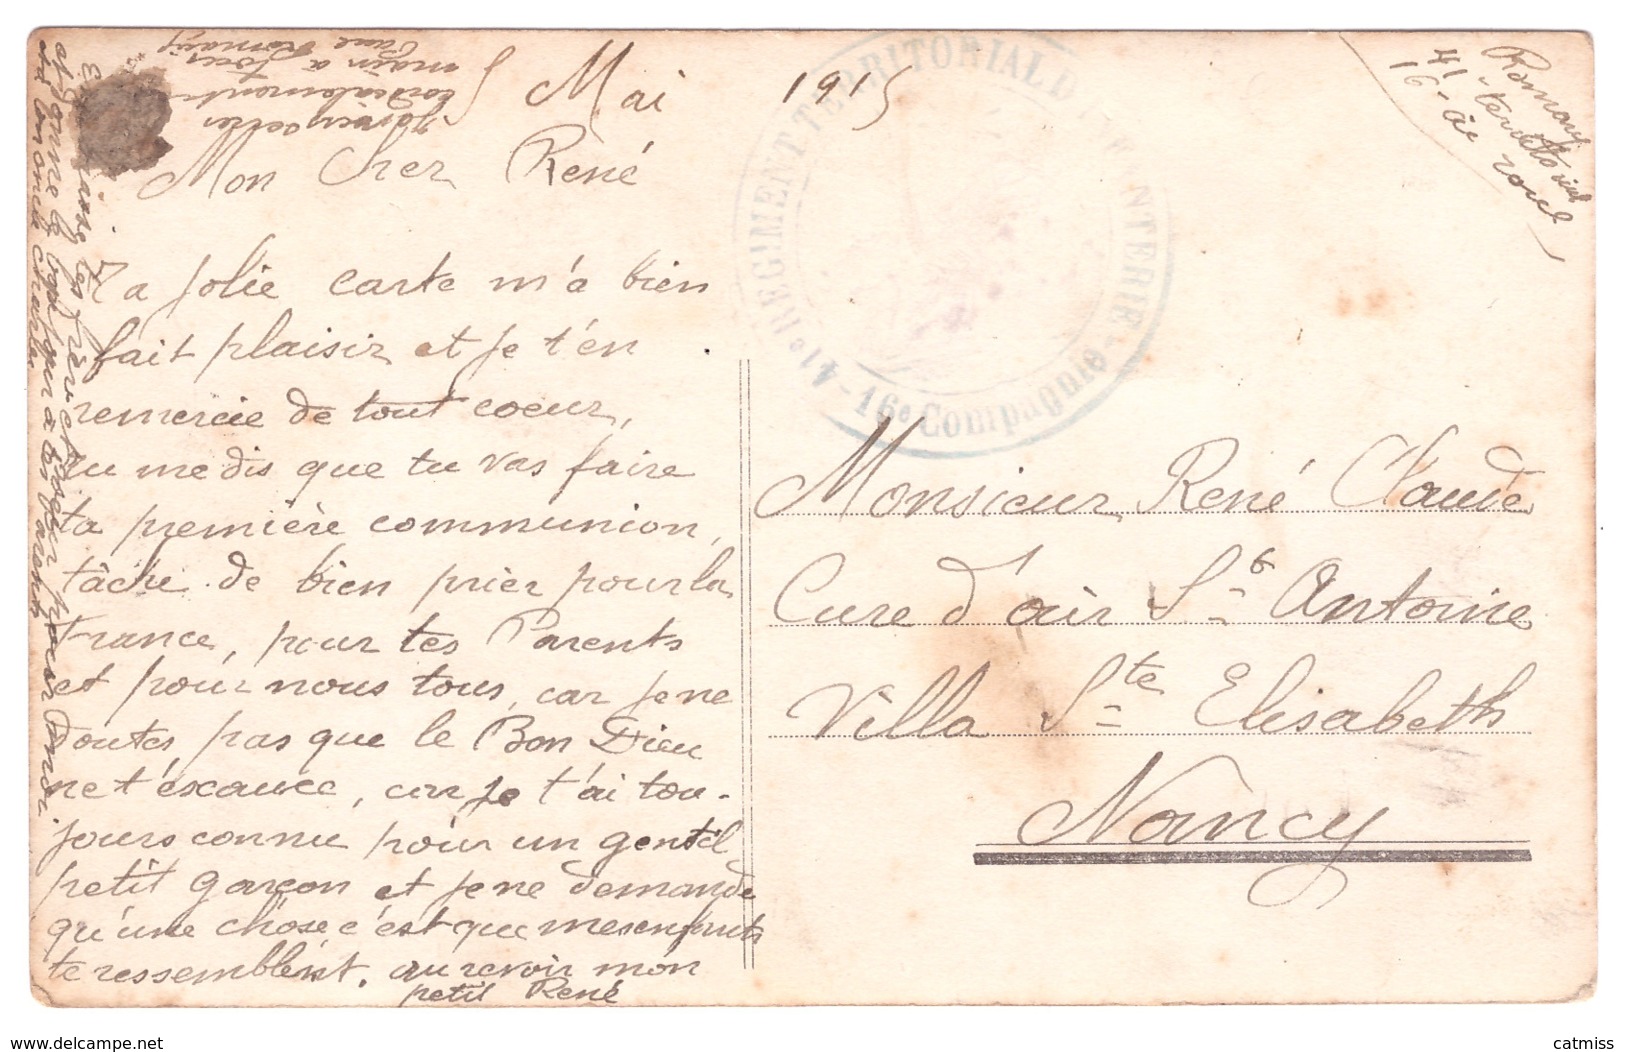 5 Mai 1915
Mon Cher René
Ta jolie carte m'a bien
fait plaisir et je t'en
remercie de tout coeur,
tu me dis que tu vas faire
ta première communion,
tâche de bien prier pour la
France, pour tes Parents
et pour nous tous, car je ne
doutes pas que le Bon Dieu
ne t'éxauce, car je t'ai tou-
jours connu pour un gentil
petit garçon et je ne demande
qu'une chose c'ést que mes enfants
te ressemblent. au revoir mon
petit René
main à tous
cordialement
41e REGIMENT TERRITORIAL D'INFANTERIE
- 16e Compagnie -
Romary
41 - territorial
16 - Cie
Monsieur René Claude
Cure d'air St Antoine
Villa Ste Elisabeth
Nancy
www.delcampe.net
catmiss